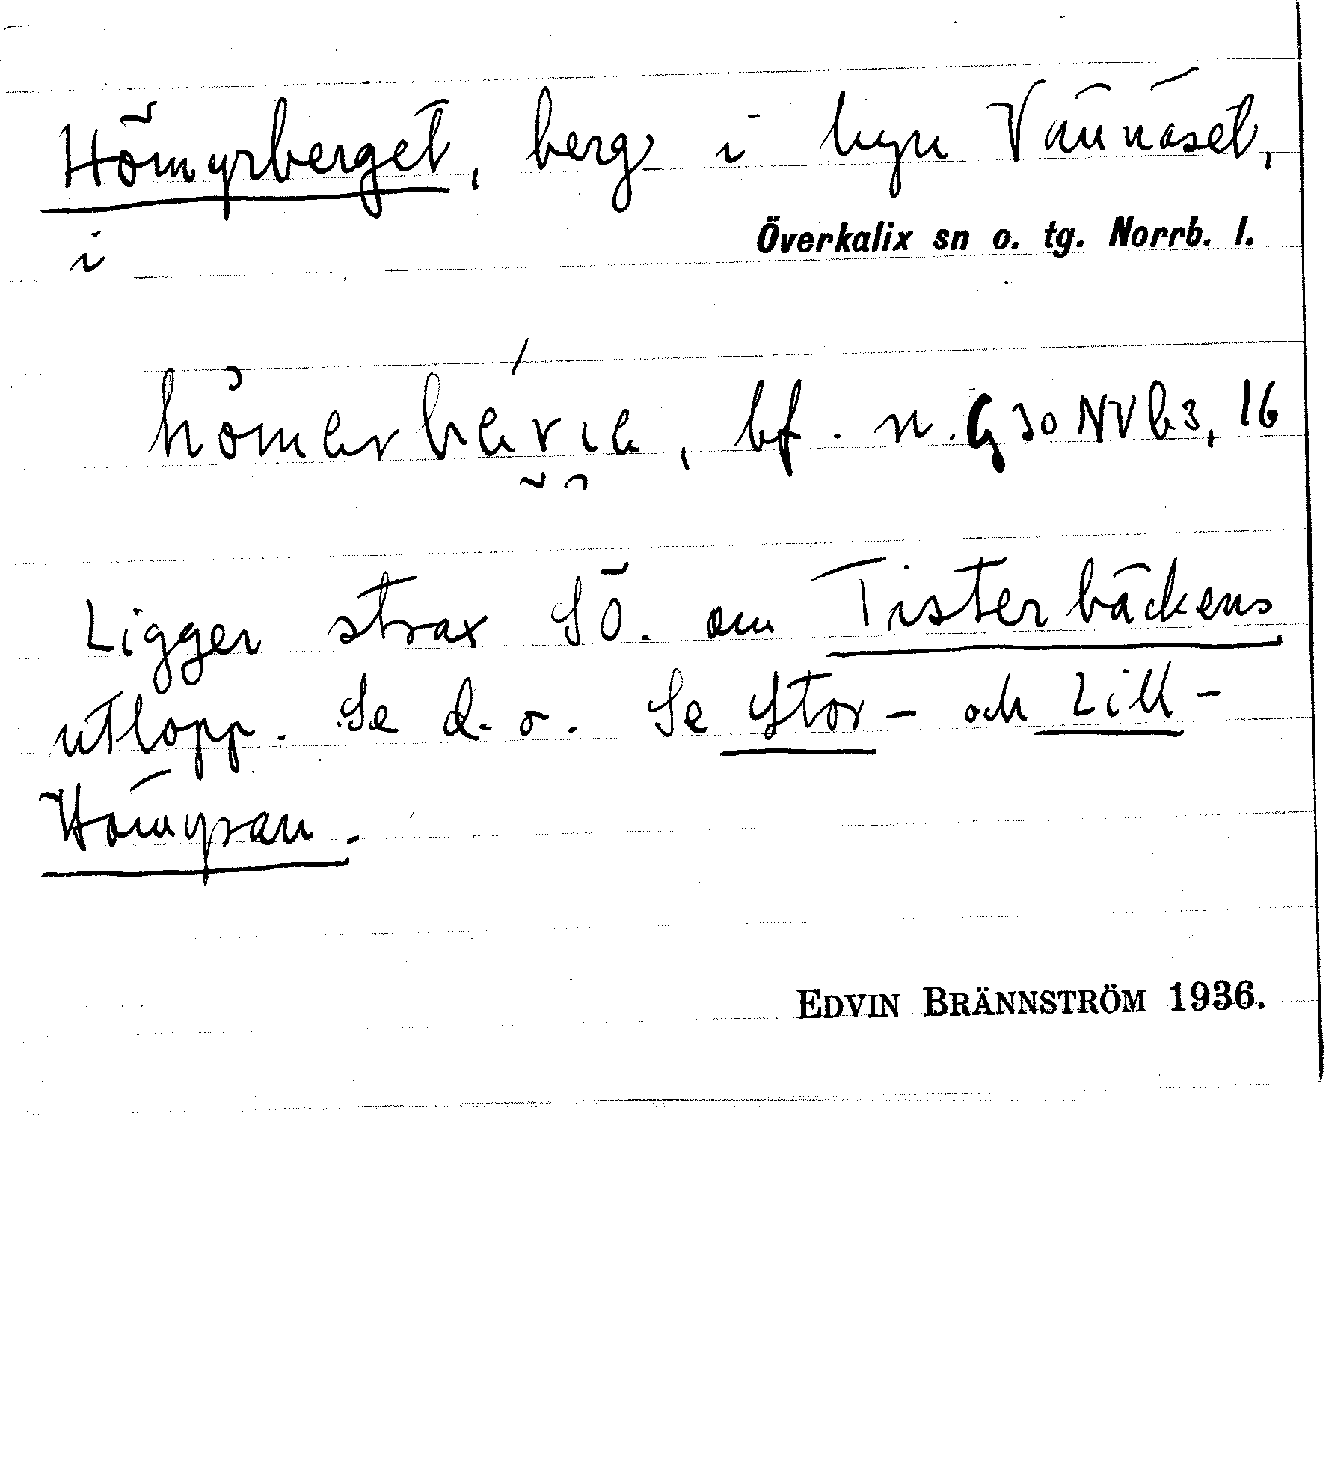 Hömyrberget, berg i byn Vännäset,
i Överkalix sn o. tg. Norrb. l.
bf. n. G 30 NV b3, 16
Ligger strax SÖ. om Tisterbäckens
utlopp. Se d. o. Se Stor- och Lill-
Hömyran.
EDVIN BRÄNNSTRÖM 1936.